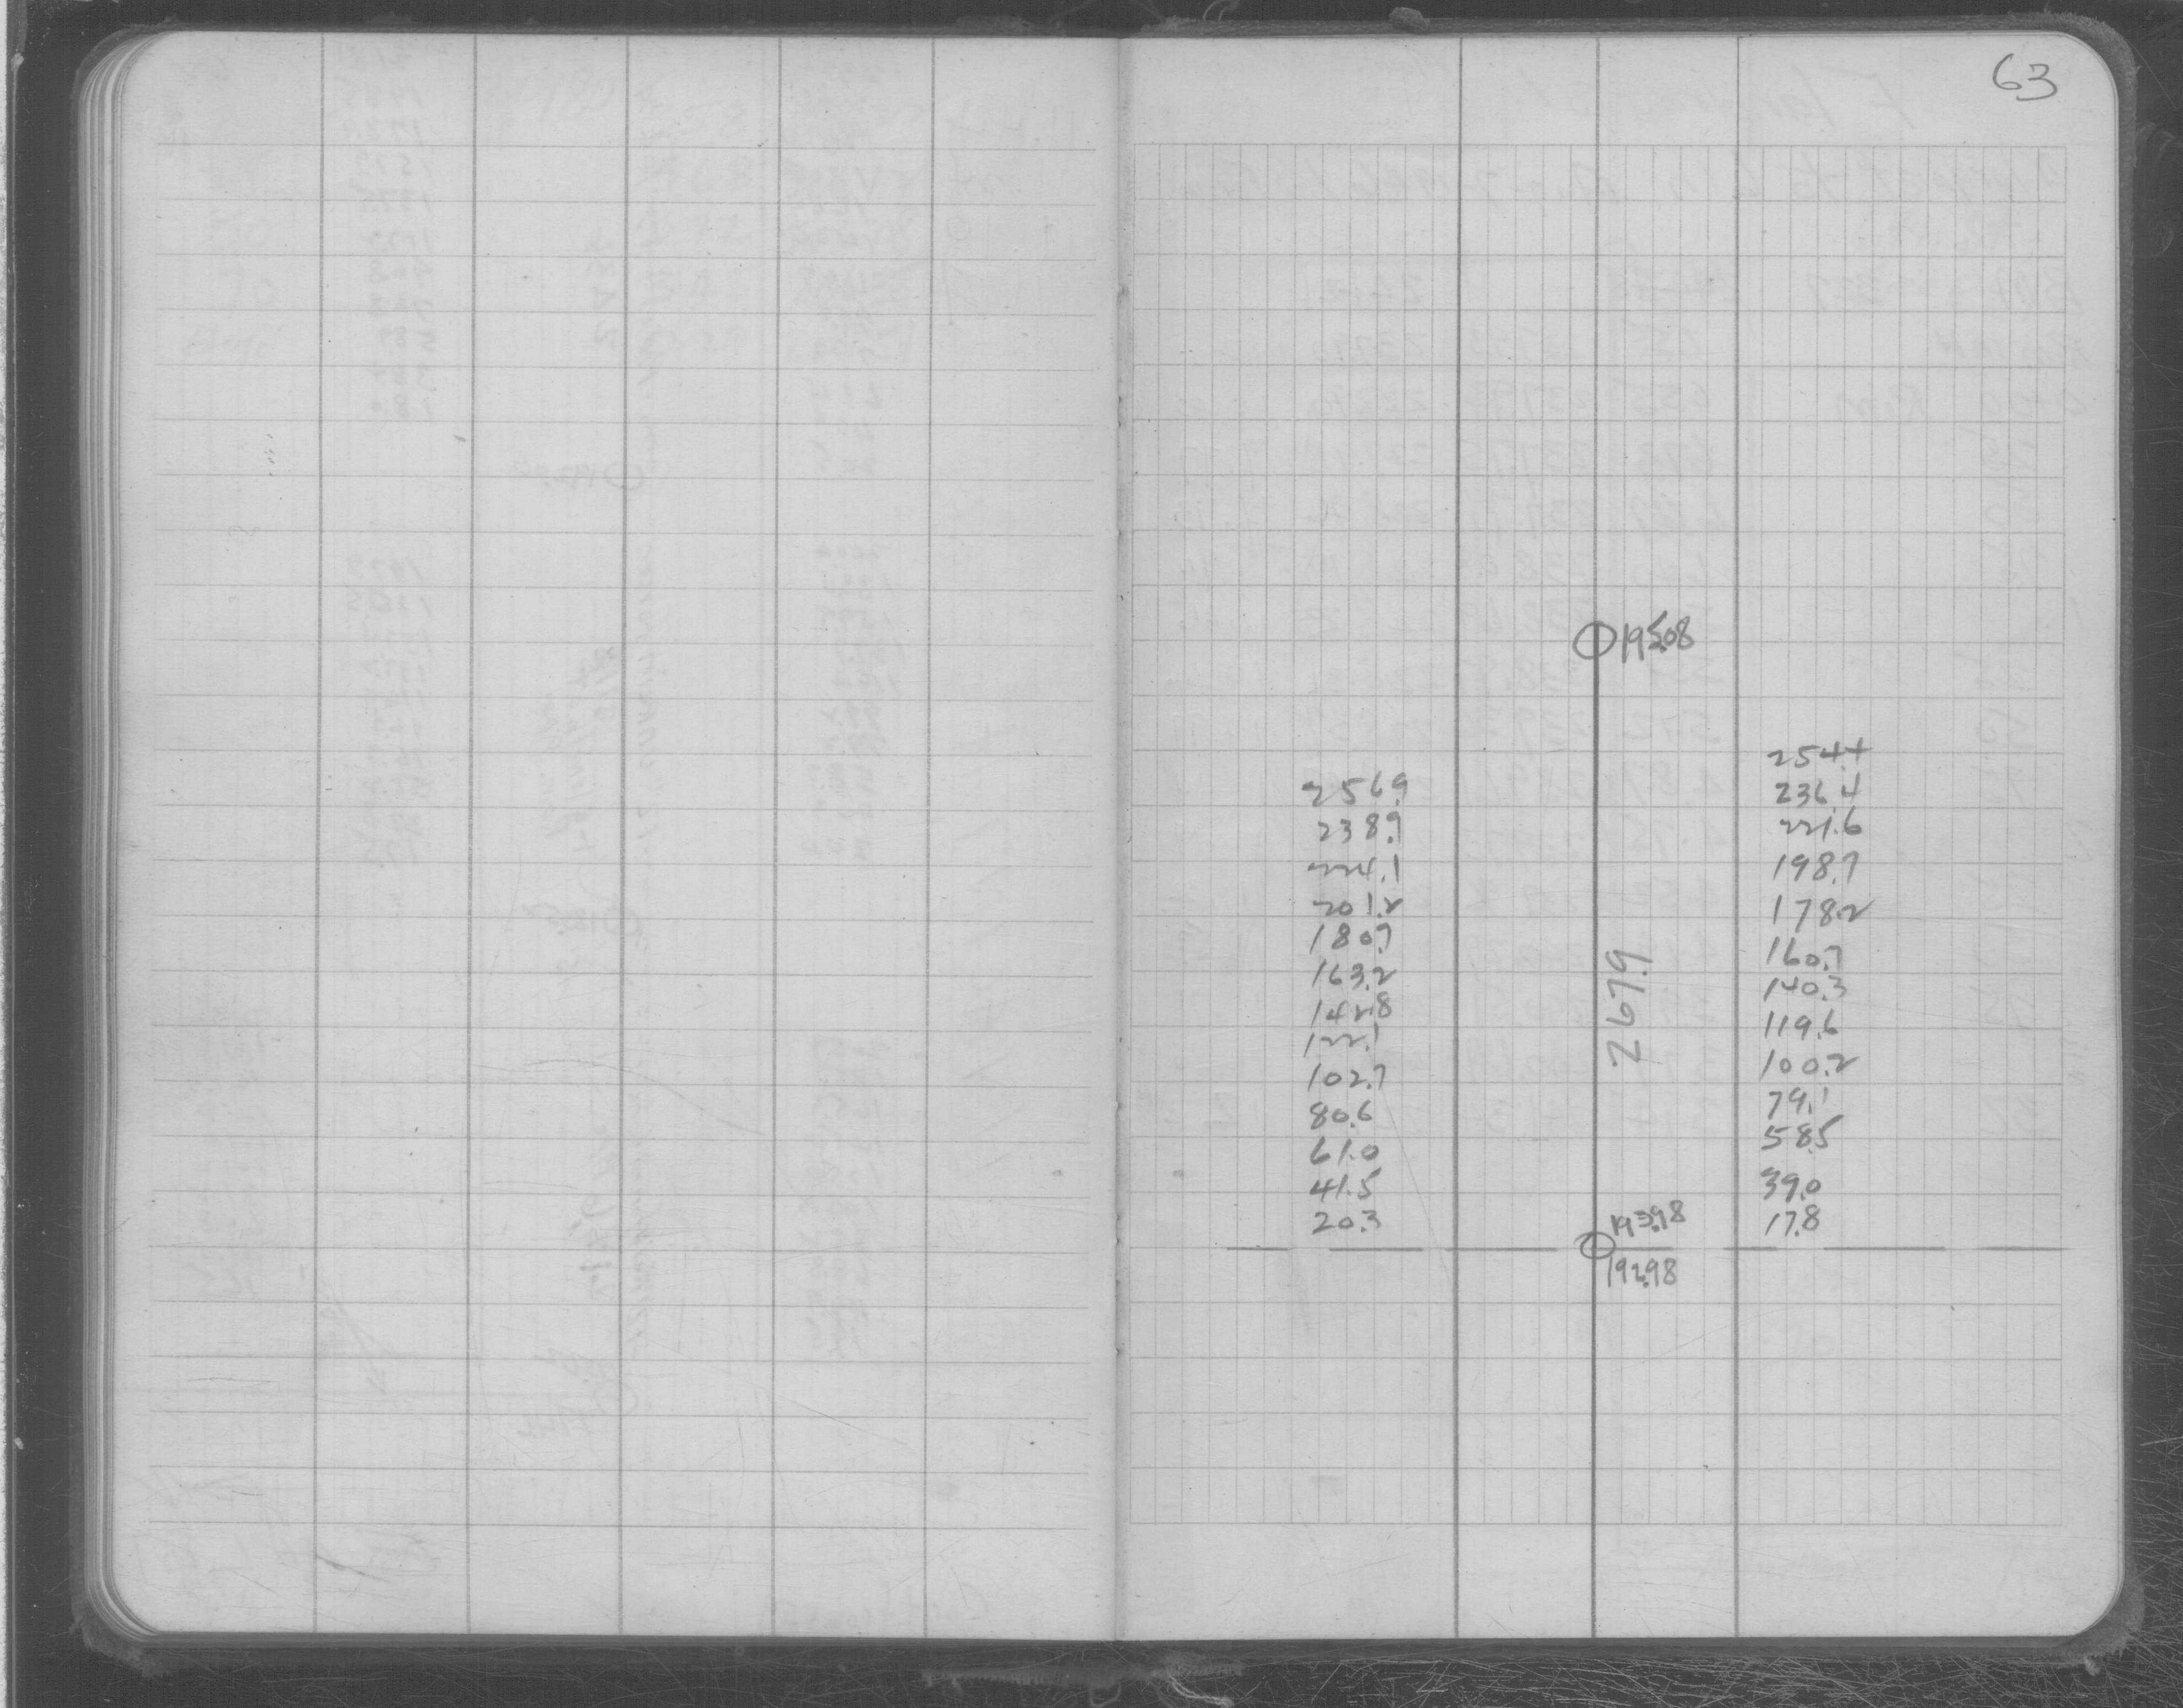 63
195.08
254.4
256.9 236.4
238.9 221.6
224.1 198.7
201.2 178.2
180.7 160.7
163.2 140.3
142.8 119.6
122.1 100.2
102.7 79.1
80.6 58.5
61.0 39.0
41.5 17.8
20.3
267.9
193.98
192.98